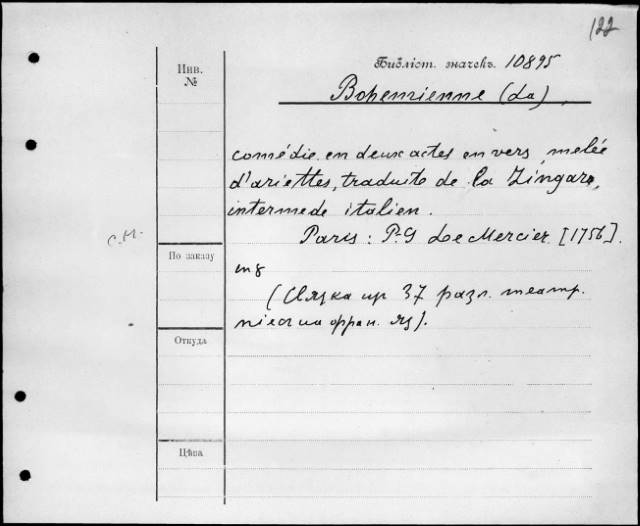 122
Инв.
№
Библіот. значекъ. 10895
Bohemienne (La),
comédie en deux actes en vers, melée
d'ariettes, traduite de la Zingara,
intermede italien.
Paris: P-G Le Mercier [1756].
С.М.
По заказу
in 8
37 разл. театр.
пьес на фран. яз).
Откуда
Цѣна